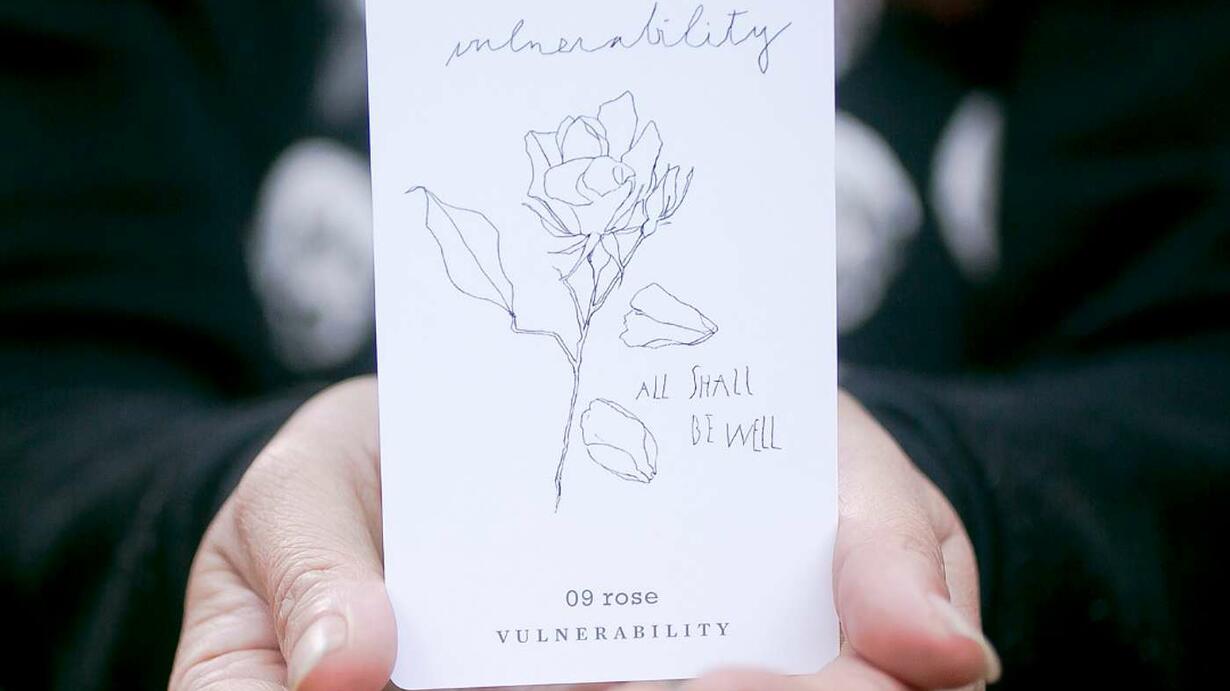 vulnerability
ALL SHALL
BE WELL
09 rose
VULNERABILITY